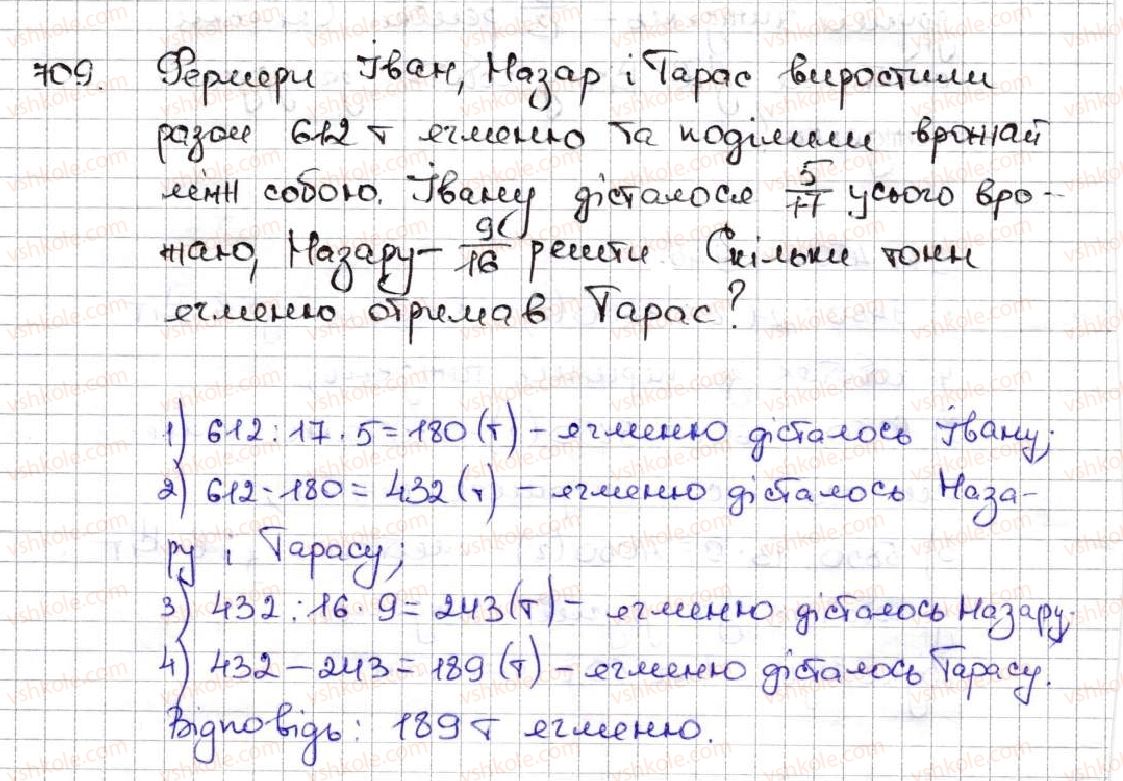 709. Фермери Іван, Назар і Тарас виростили
разом 612 т ячменю та поділили врожай
між собою. Івану дісталося 5/17 усього вро-
жаю, Назару – 9/16 решти. Скільки тонн
ячменю отримав Тарас?
1) 612 : 17 · 5 = 180 (т) – ячменю дісталось Івану;
2) 612 - 180 = 432 (т) – ячменю дісталось Наза-
ру і Тарасу;
3) 432 : 16 · 9 = 243 (т) – ячменю дісталось Назару;
4) 432 – 243 = 189 (т) – ячменю дісталось Тарасу.
Відповідь: 189 т ячменю.